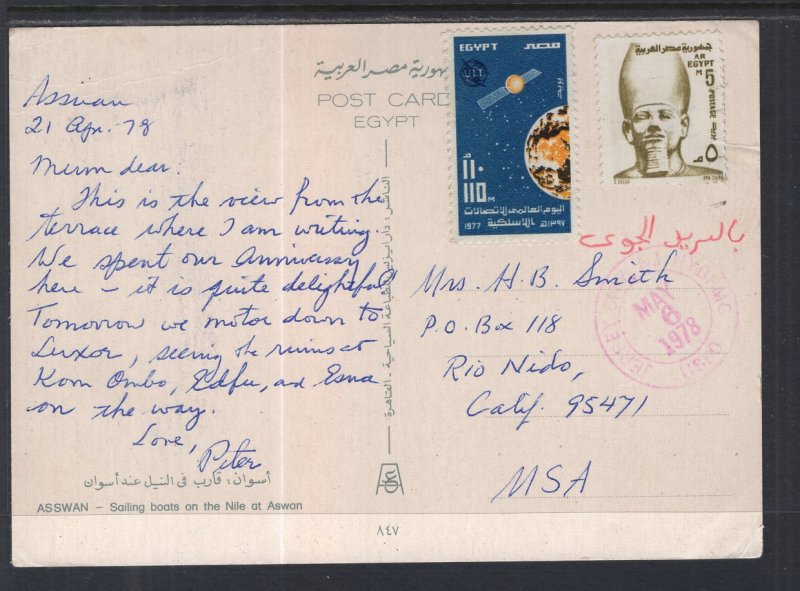 Asswan
21 Apr. 78
Mum dear:
This is the view from the
terrace where I am writing.
We spent our Annivassy
here – it is quite delightful
Tomorrow we motor down to
Luxor, seeing the ruins at
Kom Ombo, Edfu, and Esna
on the way.
Love,
Peter
أسوان: قارب فى النيل عند أسوان
ASSWAN – Sailing boats on the Nile at Aswan
جمهورية مصر العربية
POST CARD
EGYPT
الناشر: دار
للطباعة السياحية - القاهرة
٨٤٧
EGYPT مصر
U.I.T.
بريد
١١٠ م
110 M
اليوم العالمى للاتصالات
اللاسلكية
1977 ١٣٩٧ هـ
جمهورية مصر العربية
AR
EGYPT
M 5
POSTAGE
بريد
٥ م
بالبريد الجوى
MAY
6
1978
USPO
Mrs. H.B. Smith
P.O. Box 118
Rio Nido,
Calif. 95471
USA